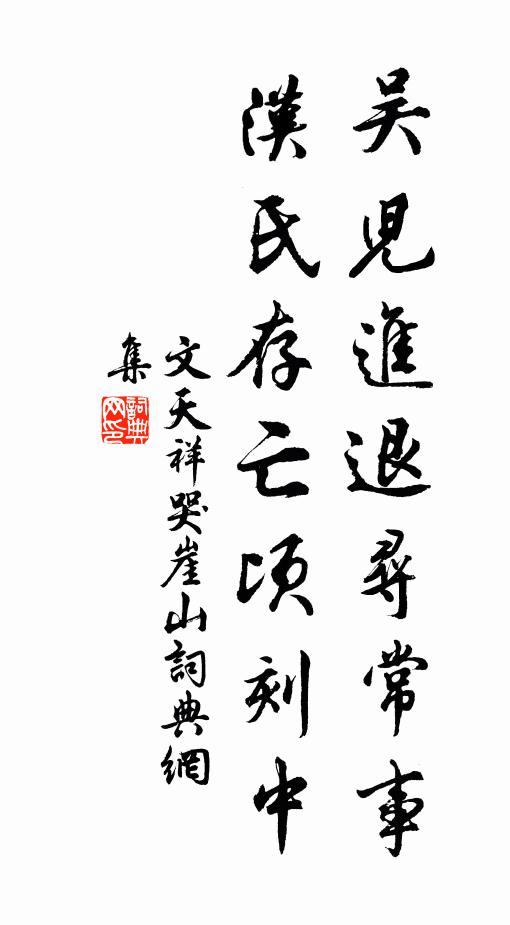 吳兒進退尋常事
漢氏存亡頃刻中
文天祥哭崖山詞典網
集
詞典網印